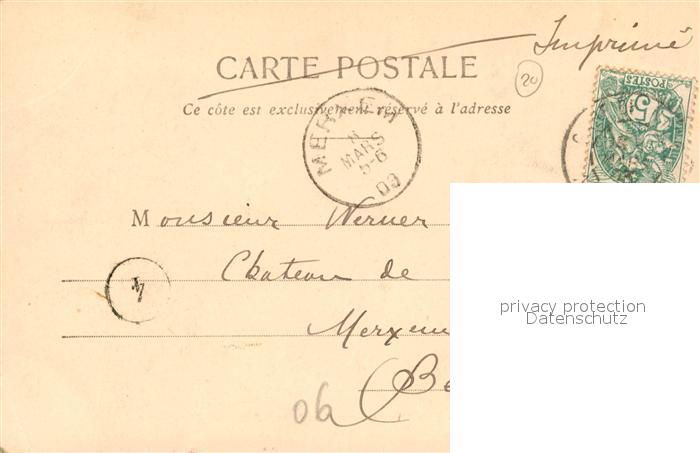 Imprimé
CARTE POSTALE
20
Ce côte est exclusivement réservé à l'adresse
POSTES
5
MERXEM
11
MARS
5-6
03
Monsieur Werner
Chateau de
Merxem
4
06
privacy protection
Datenschutz